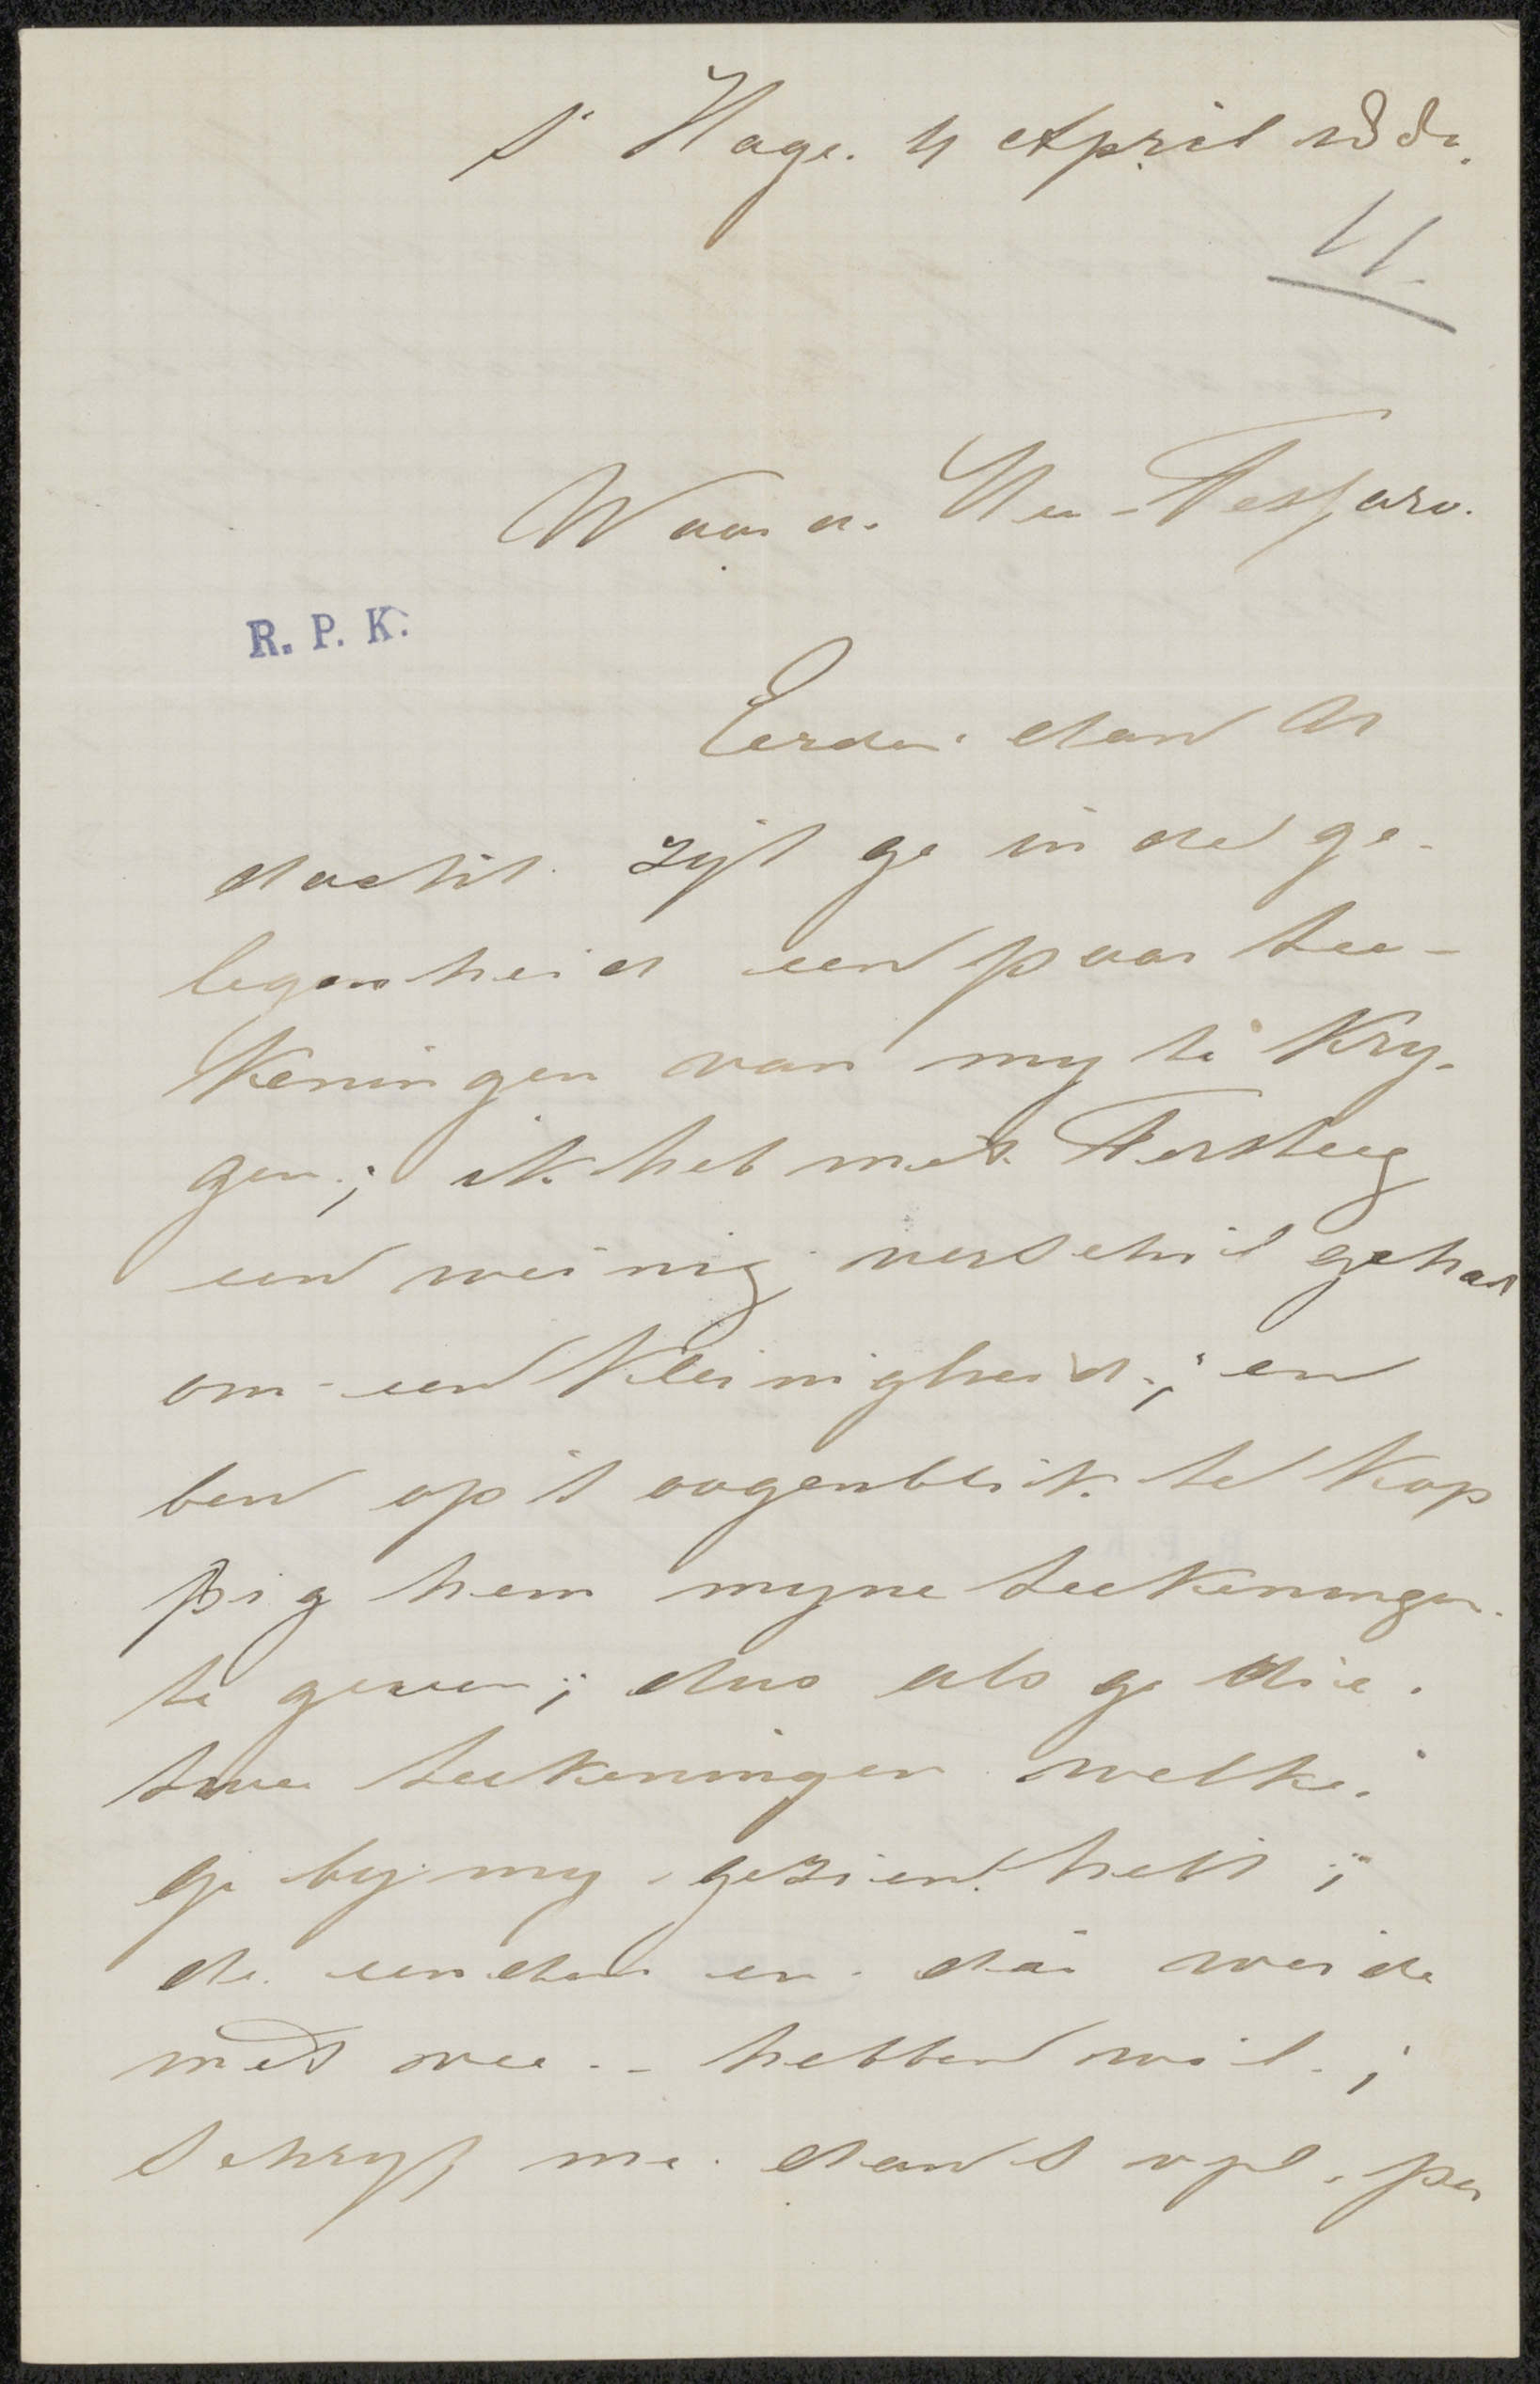 s' Hage. 4 April 188
11
Waarde Heer Tessaro.
R. P. K.
Eerder dan ik
dacht zijt ge in de ge-
legenheid een paar tee-
keningen van my te kry-
gen; ik heb met Tersteeg
een weinig verschil gehad
om een kleinigheid; en
ben op 't oogenblik te kop
pig hem myne teekeningen
te geven; dus als ge die
twee teekeningen welke
ge by my gezien hebt;
de eenden en de weide
met vee -- hebben wil;
schryf me dan s'vpl. per